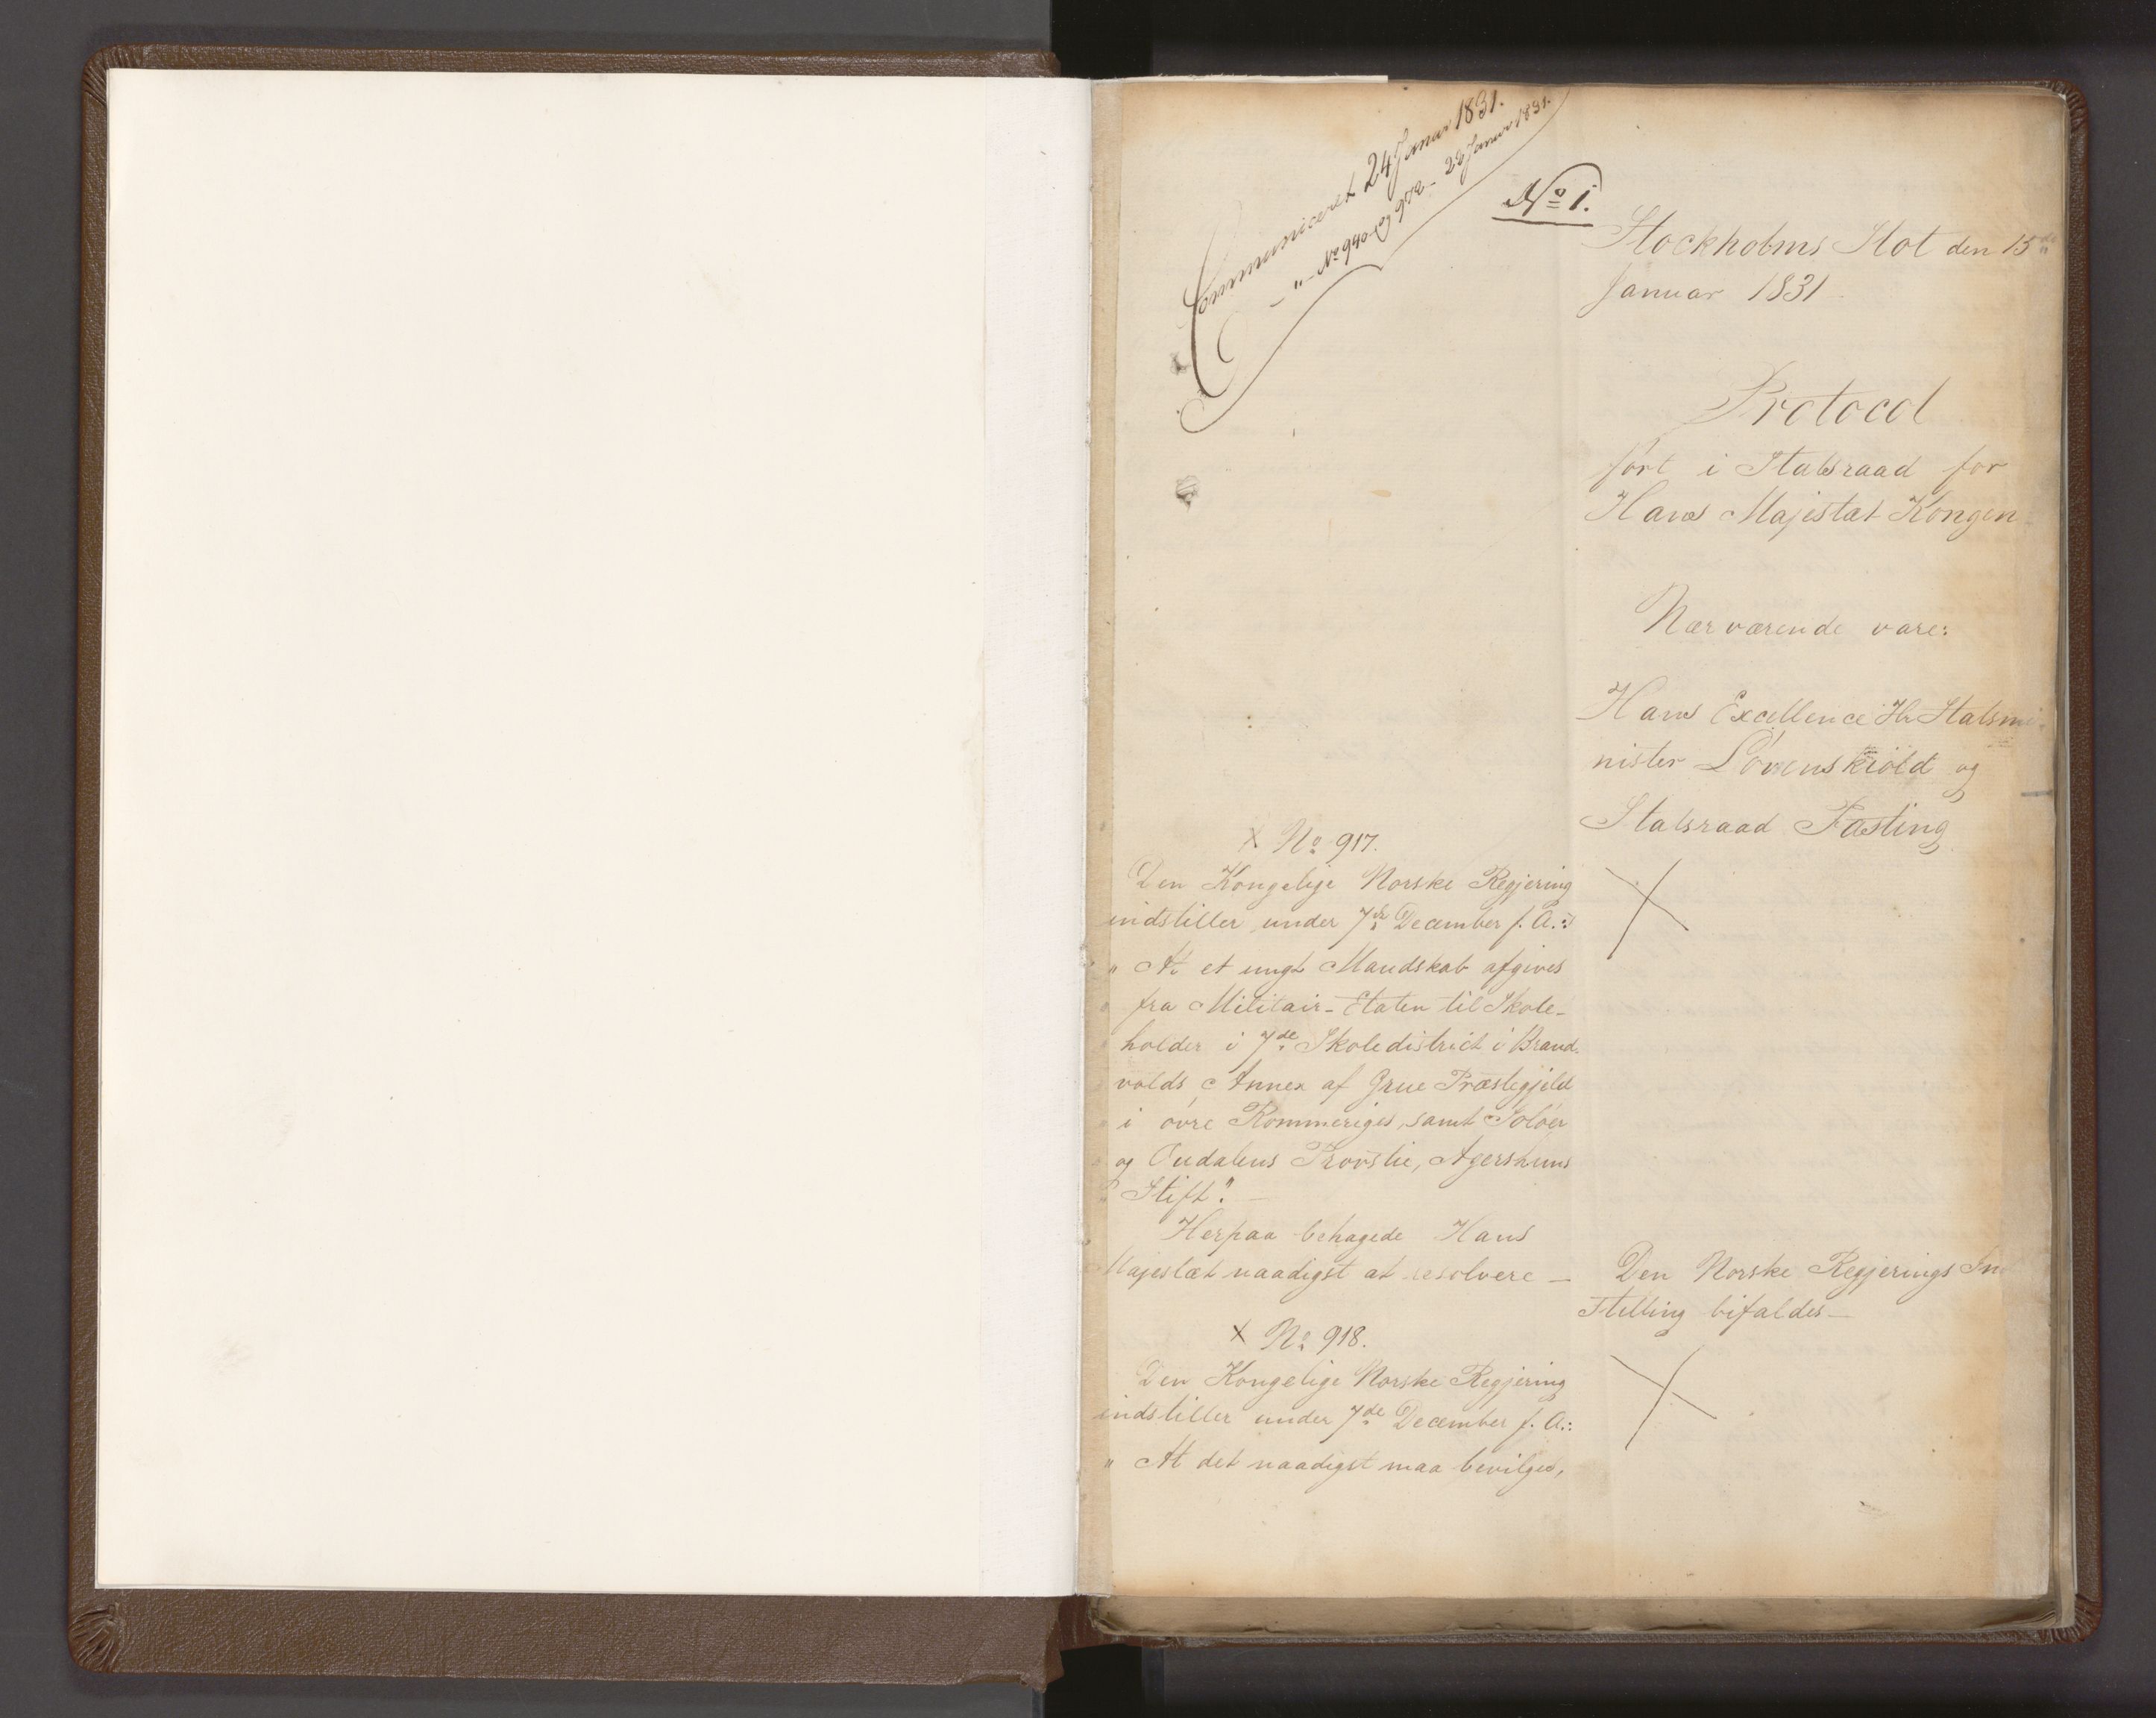 Communiceret 24 Januar 1831.
- " - No 946 & 952 - 28 Januar 1831.
No 1.
Stockholms Slot den 15de
Januar 1831
Protocol
fört i Statsraad for
Hans Majestæt Kongen
Nærværende vare:
Hans Excellence Hr Statsmi
nister Lövenskiold og
Statsraad Fasting
X No 917.
Den Kongelige Norske Regjering
indstiller under 7de December f. A.:
" At et ungt Mandskab afgives
" fra Militair-Etaten til Skole-
" holder i 7de Skoledistrict i Brand-
" volds Annex af Grue Præstegjeld
" i övre Rommeriges, samt Solöer
" og Oudalens Provstie, Agershuus
" Stift". -
Herpaa behagede Hans
Majestæt naadigst at resolvere -
Den Norske Regjerings Ind
stilling bifaldes -
X No 918.
Den Kongelige Norske Regjering
indstiller under 7de December f. A.:
" At det naadigst maa bevilges,